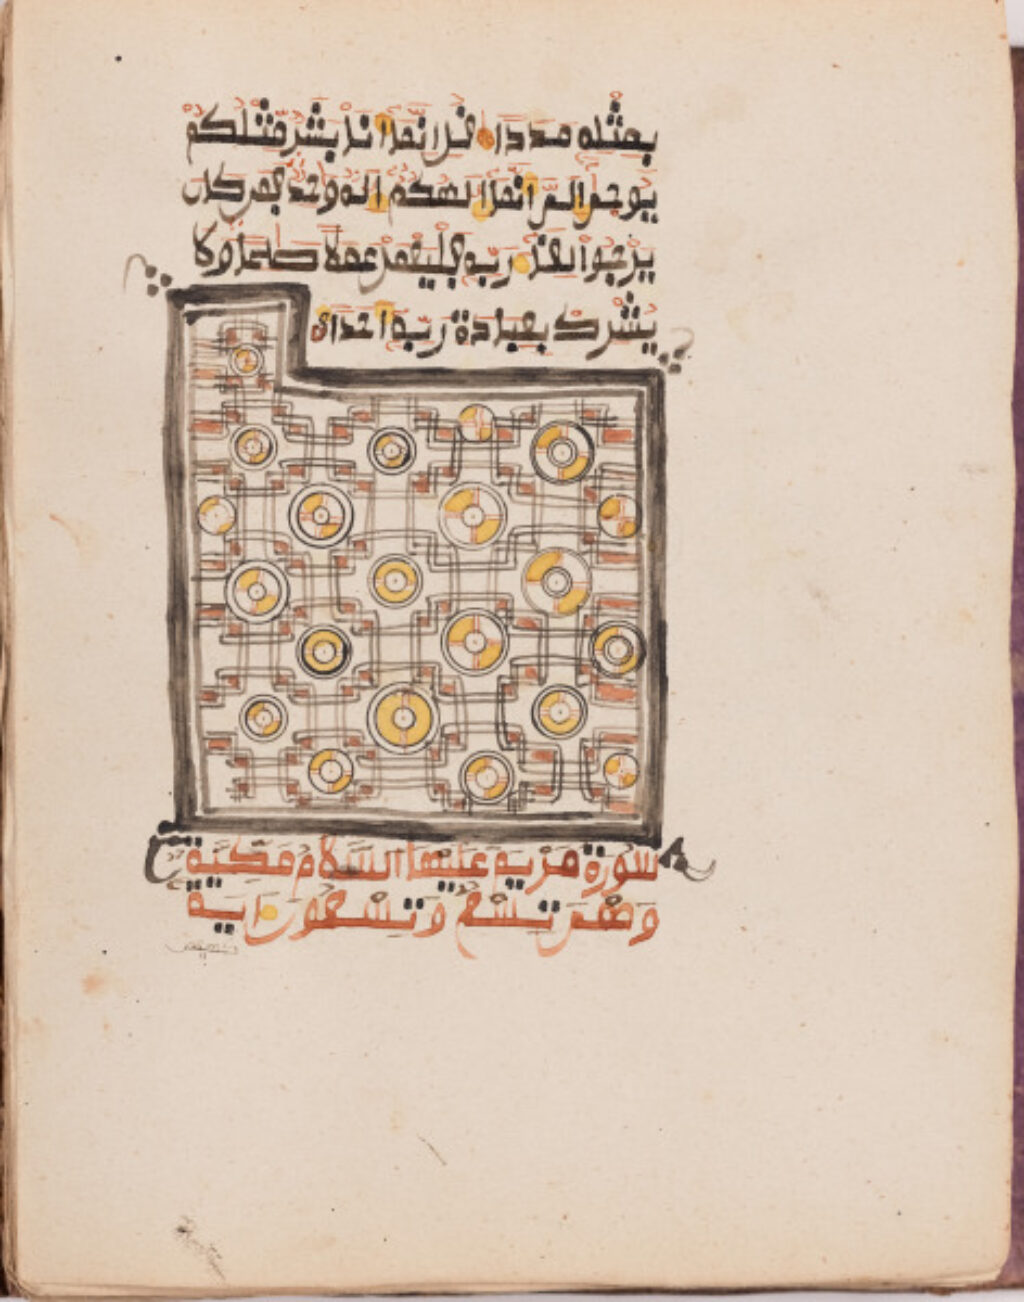 بمثله مددا قل انما انا بشر مثلكم
يوحى الى انما الهكم اله وحد فمن كان
يرجوا لقاء ربه فليعمل عملا صلحا ولا
يشرك بعبادة ربه احدا
سورة مريم عليها السلام مكية
وهى تسع وتسعون اية